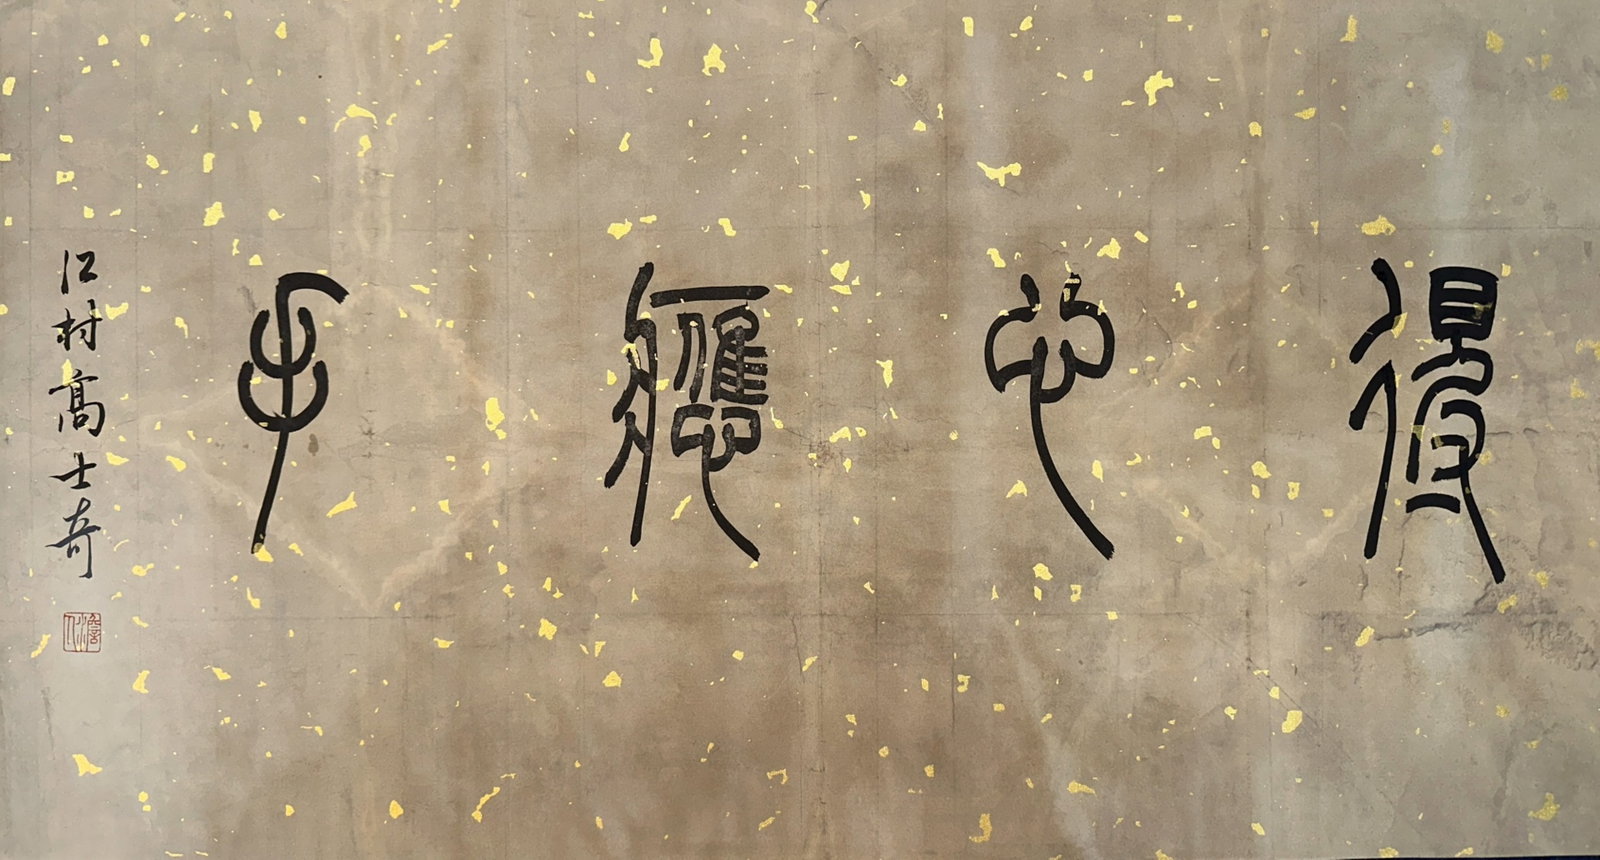 得心應手
江村高士奇
澹人